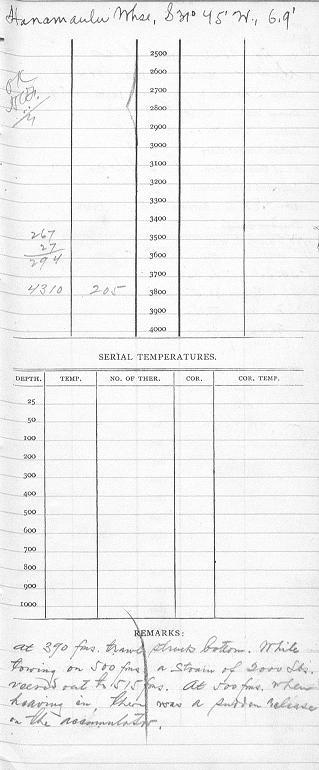 Hanamaulu Whse, S 31° 45' W., 6.9'
2500
2600
OK
2700
2800
2900
3000
3100
3200
3300
3400
267
3500
27
3600
294
3700
4310 205 3800
3900
4000
SERIAL TEMPERATURES.
DEPTH. TEMP. NO. OF THER. COR. COR. TEMP.
25
50
100
200
300
400
500
600
700
800
900
1000
REMARKS:
at 390 fms. trawl struck bottom. While
towing on 500 fms a strain of 2000 lbs.
veered out to 515 fms. At 500 fms. when
heaving in, there was a sudden release
on the accumulator.